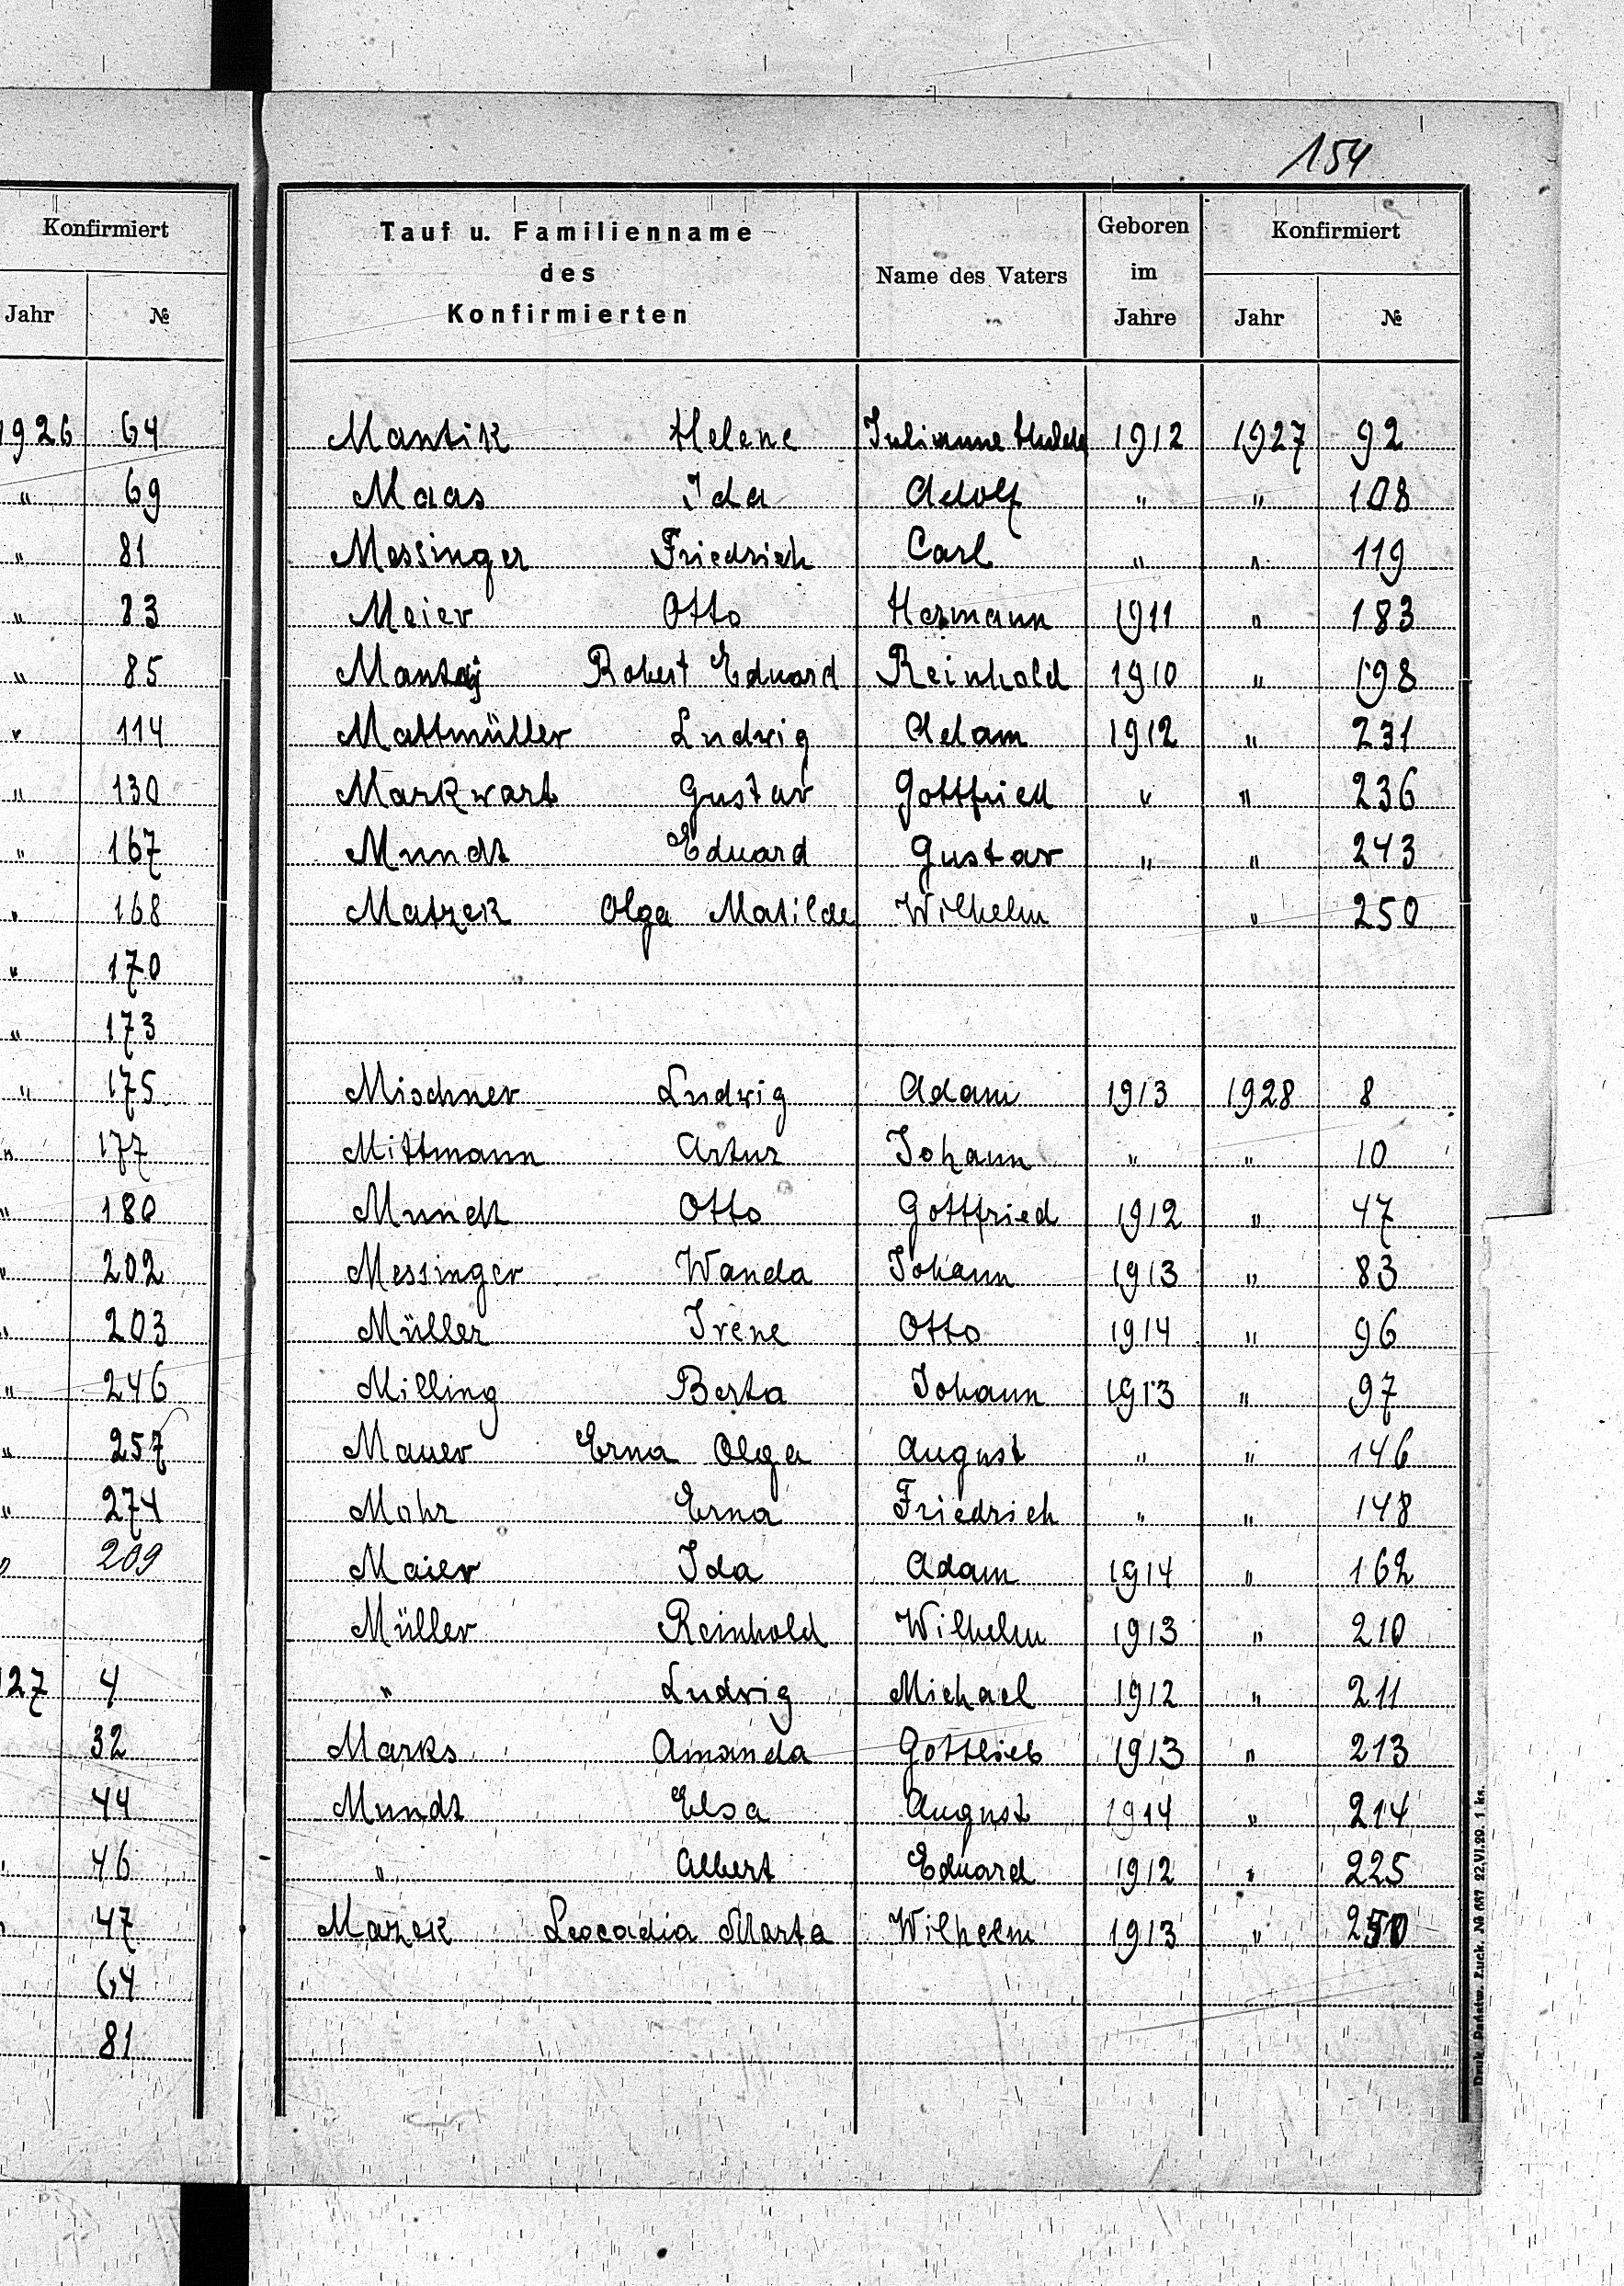 154
Konfirmiert
Jahr №
1926 64
" 69
" 81
" 83
" 85
" 114
" 130
" 167
" 168
" 170
" 173
" 175
" 177
" 180
" 202
" 203
" 246
" 257
" 274
" 209
27 4
32
44
46
47
64
81
Tauf u. Familienname des Konfirmierten Name des Vaters Geboren im Jahre Konfirmiert Jahr №
Mantik Helene Julianne 1912 1927 92
Maas Ida Adolf " " 108
Messinger Friedrich Carl " " 119
Meier Otto Hermann 1911 " 183
Mantaj Robert Eduard Reinhold 1910 " 198
Mattmüller Ludwig Adam 1912 " 231
Markwart Gustav Gottfried " " 236
Mundt Eduard Gustav " " 243
Matzek Olga Matilde Wilhelm " 250
Mischner Ludwig Adam 1913 1928 8
Mittmann Artur Johann " " 10
Mundt Otto Gottfried 1912 " 47
Messinger Wanda Johann 1913 " 83
Müller Irene Otto 1914 " 96
Milling Berta Johann 1913 " 97
Mauer Erna Olga August " " 146
Mohr Erna Friedrich " " 148
Maier Ida Adam 1914 " 162
Müller Reinhold Wilhelm 1913 " 210
" Ludwig Michael 1912 " 211
Marks Amanda Gottlieb 1913 " 213
Mundt Elsa August 1914 " 214
" Albert Eduard 1912 " 225
Mazek Leocadia Marta Wilhelm 1913 " 250
Druk. Państw. Łuck. № 687 22.VI.29. 1 ks.